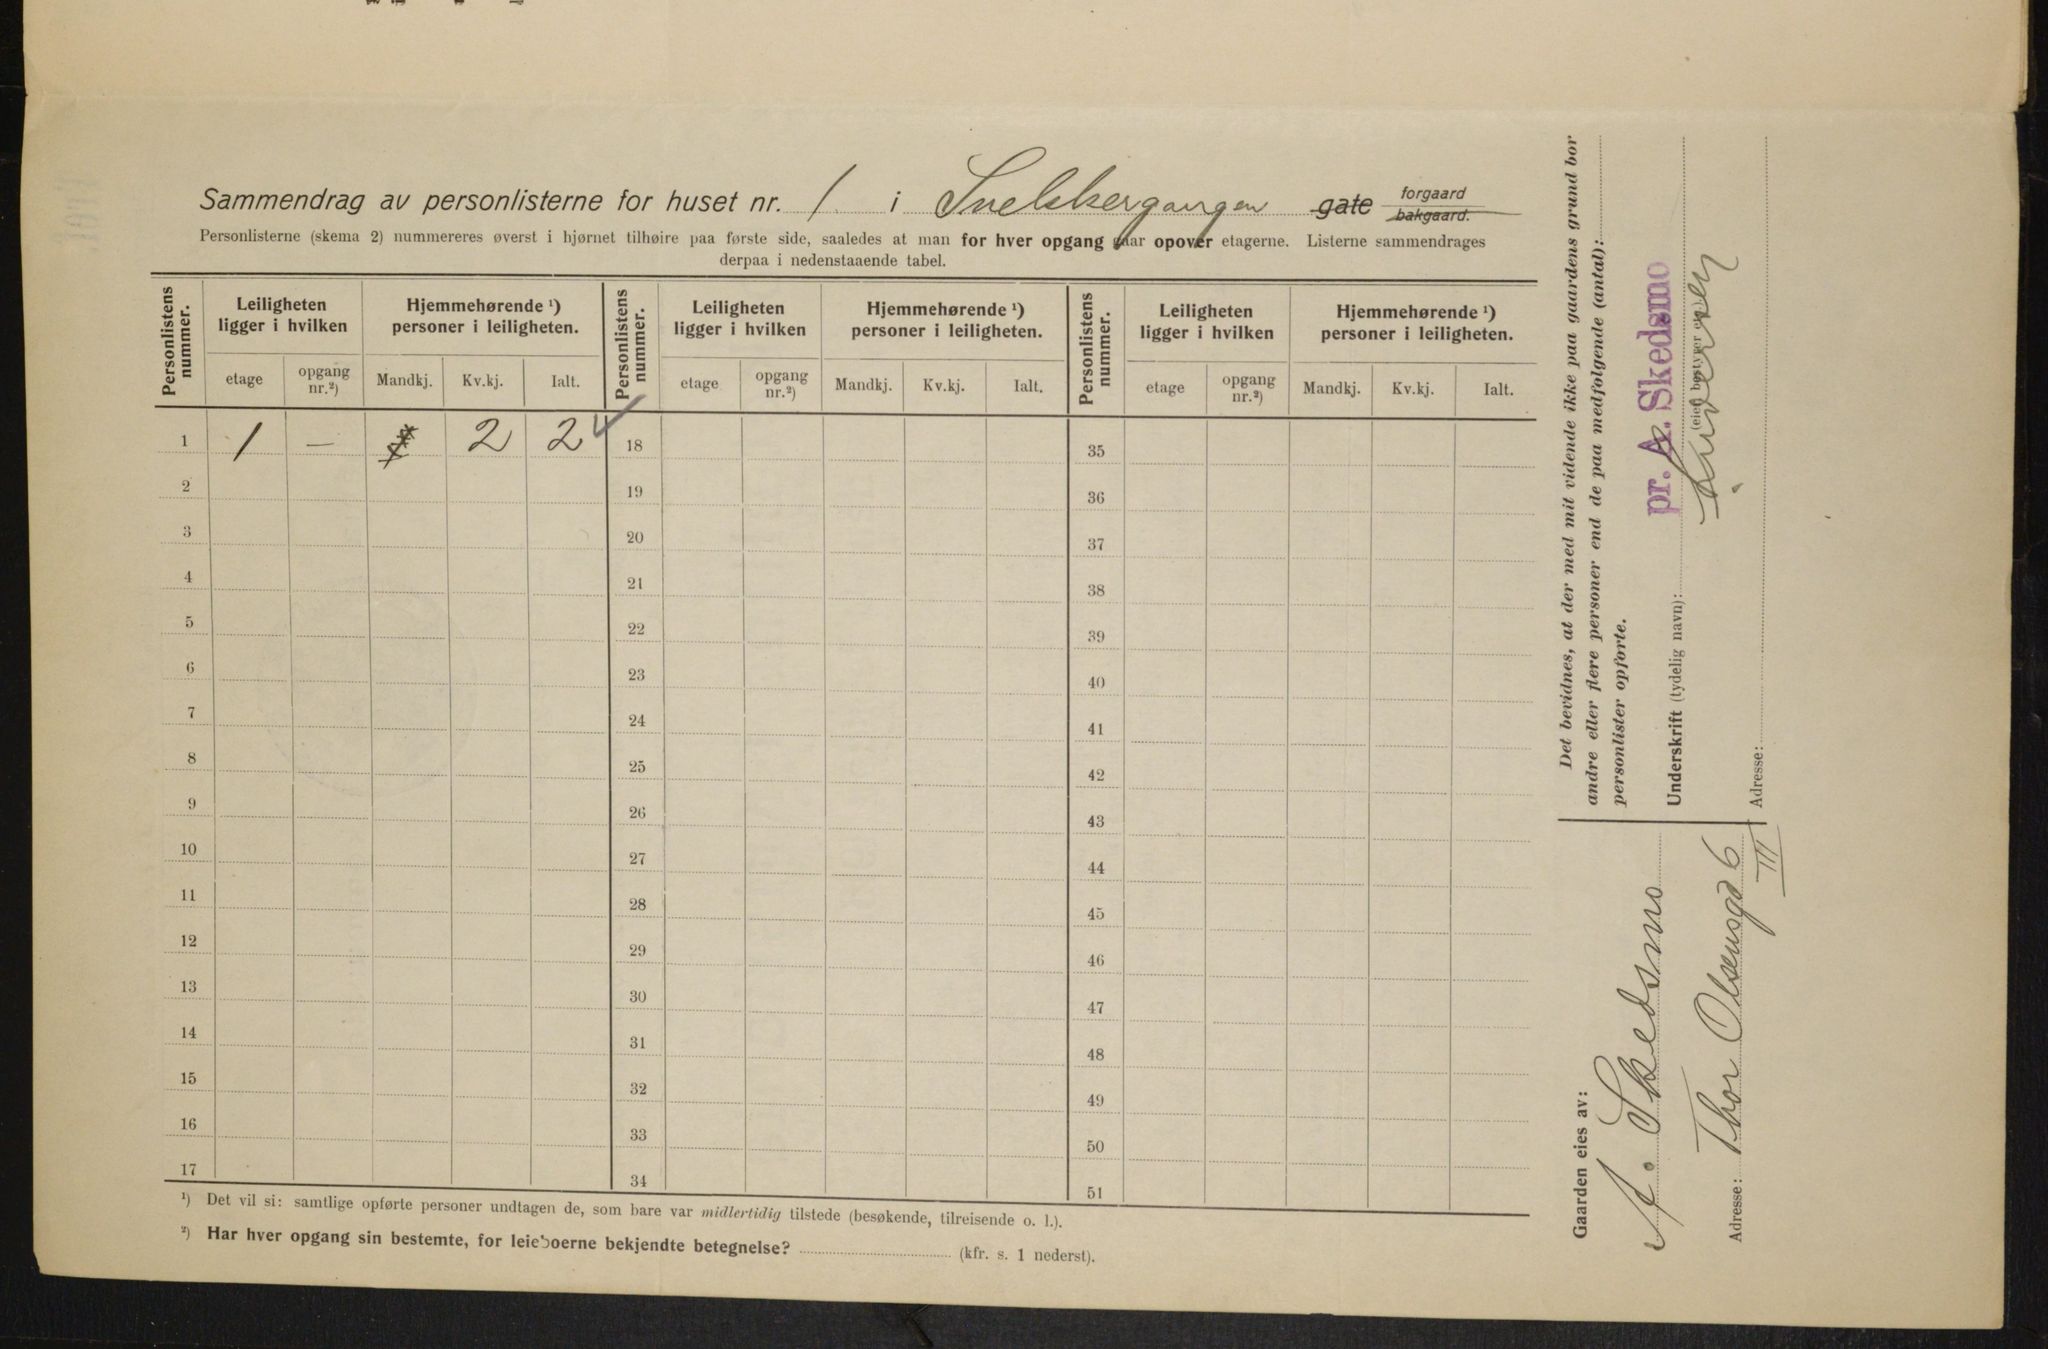 Sammendrag av personlisterne for huset nr. 1 i Snelskergangen gate forgaard bakgaard.
Personlisterne (skema 2) nummereres øverst i hjørnet tilhøire paa første side, saaledes at man for hver opgang gaar opover etagerne. Listerne sammendrages
derpaa i nedenstaaende tabel.
Personlistens nummer. Leiligheten ligger i hvilken Hjemmehørende ¹) personer i leiligheten. Personlistens nummer. Leiligheten ligger i hvilken Hjemmehørende ¹) personer i leiligheten. Personlistens nummer. Leiligheten ligger i hvilken Hjemmehørende ¹) personer i leiligheten.
etage opgang nr.²) Mandkj. Kv.kj. Ialt. etage opgang nr.²) Mandkj. Kv.kj. Ialt. etage opgang nr.²) Mandkj. Kv.kj. Ialt.
1 1 — 2 2 18 35
2 19 36
3 20 37
4 21 38
5 22 39
6 23 40
7 24 41
8 25 42
9 26 43
10 27 44
11 28 45
12 29 46
13 30 47
14 31 48
15 32 49
16 33 50
17 34 51
¹) Det vil si: samtlige opførte personer undtagen de, som bare var midlertidig tilstede (besøkende, tilreisende o. l.).
²) Har hver opgang sin bestemte, for leieboerne bekjendte betegnelse? (kfr. s. 1 nederst).
Det bevidnes, at der med mit vidende ikke paa gaardens grund bor
andre eller flere personer end de paa medfølgende (antal):
personlister opførte.
pr. A. Skedsmo
Underskrift (tydelig navn):
(eier, bestyrer
Adresse:
Gaarden eies av:
A. Skedsmo
Adresse: Thor Olsensgd 6
III